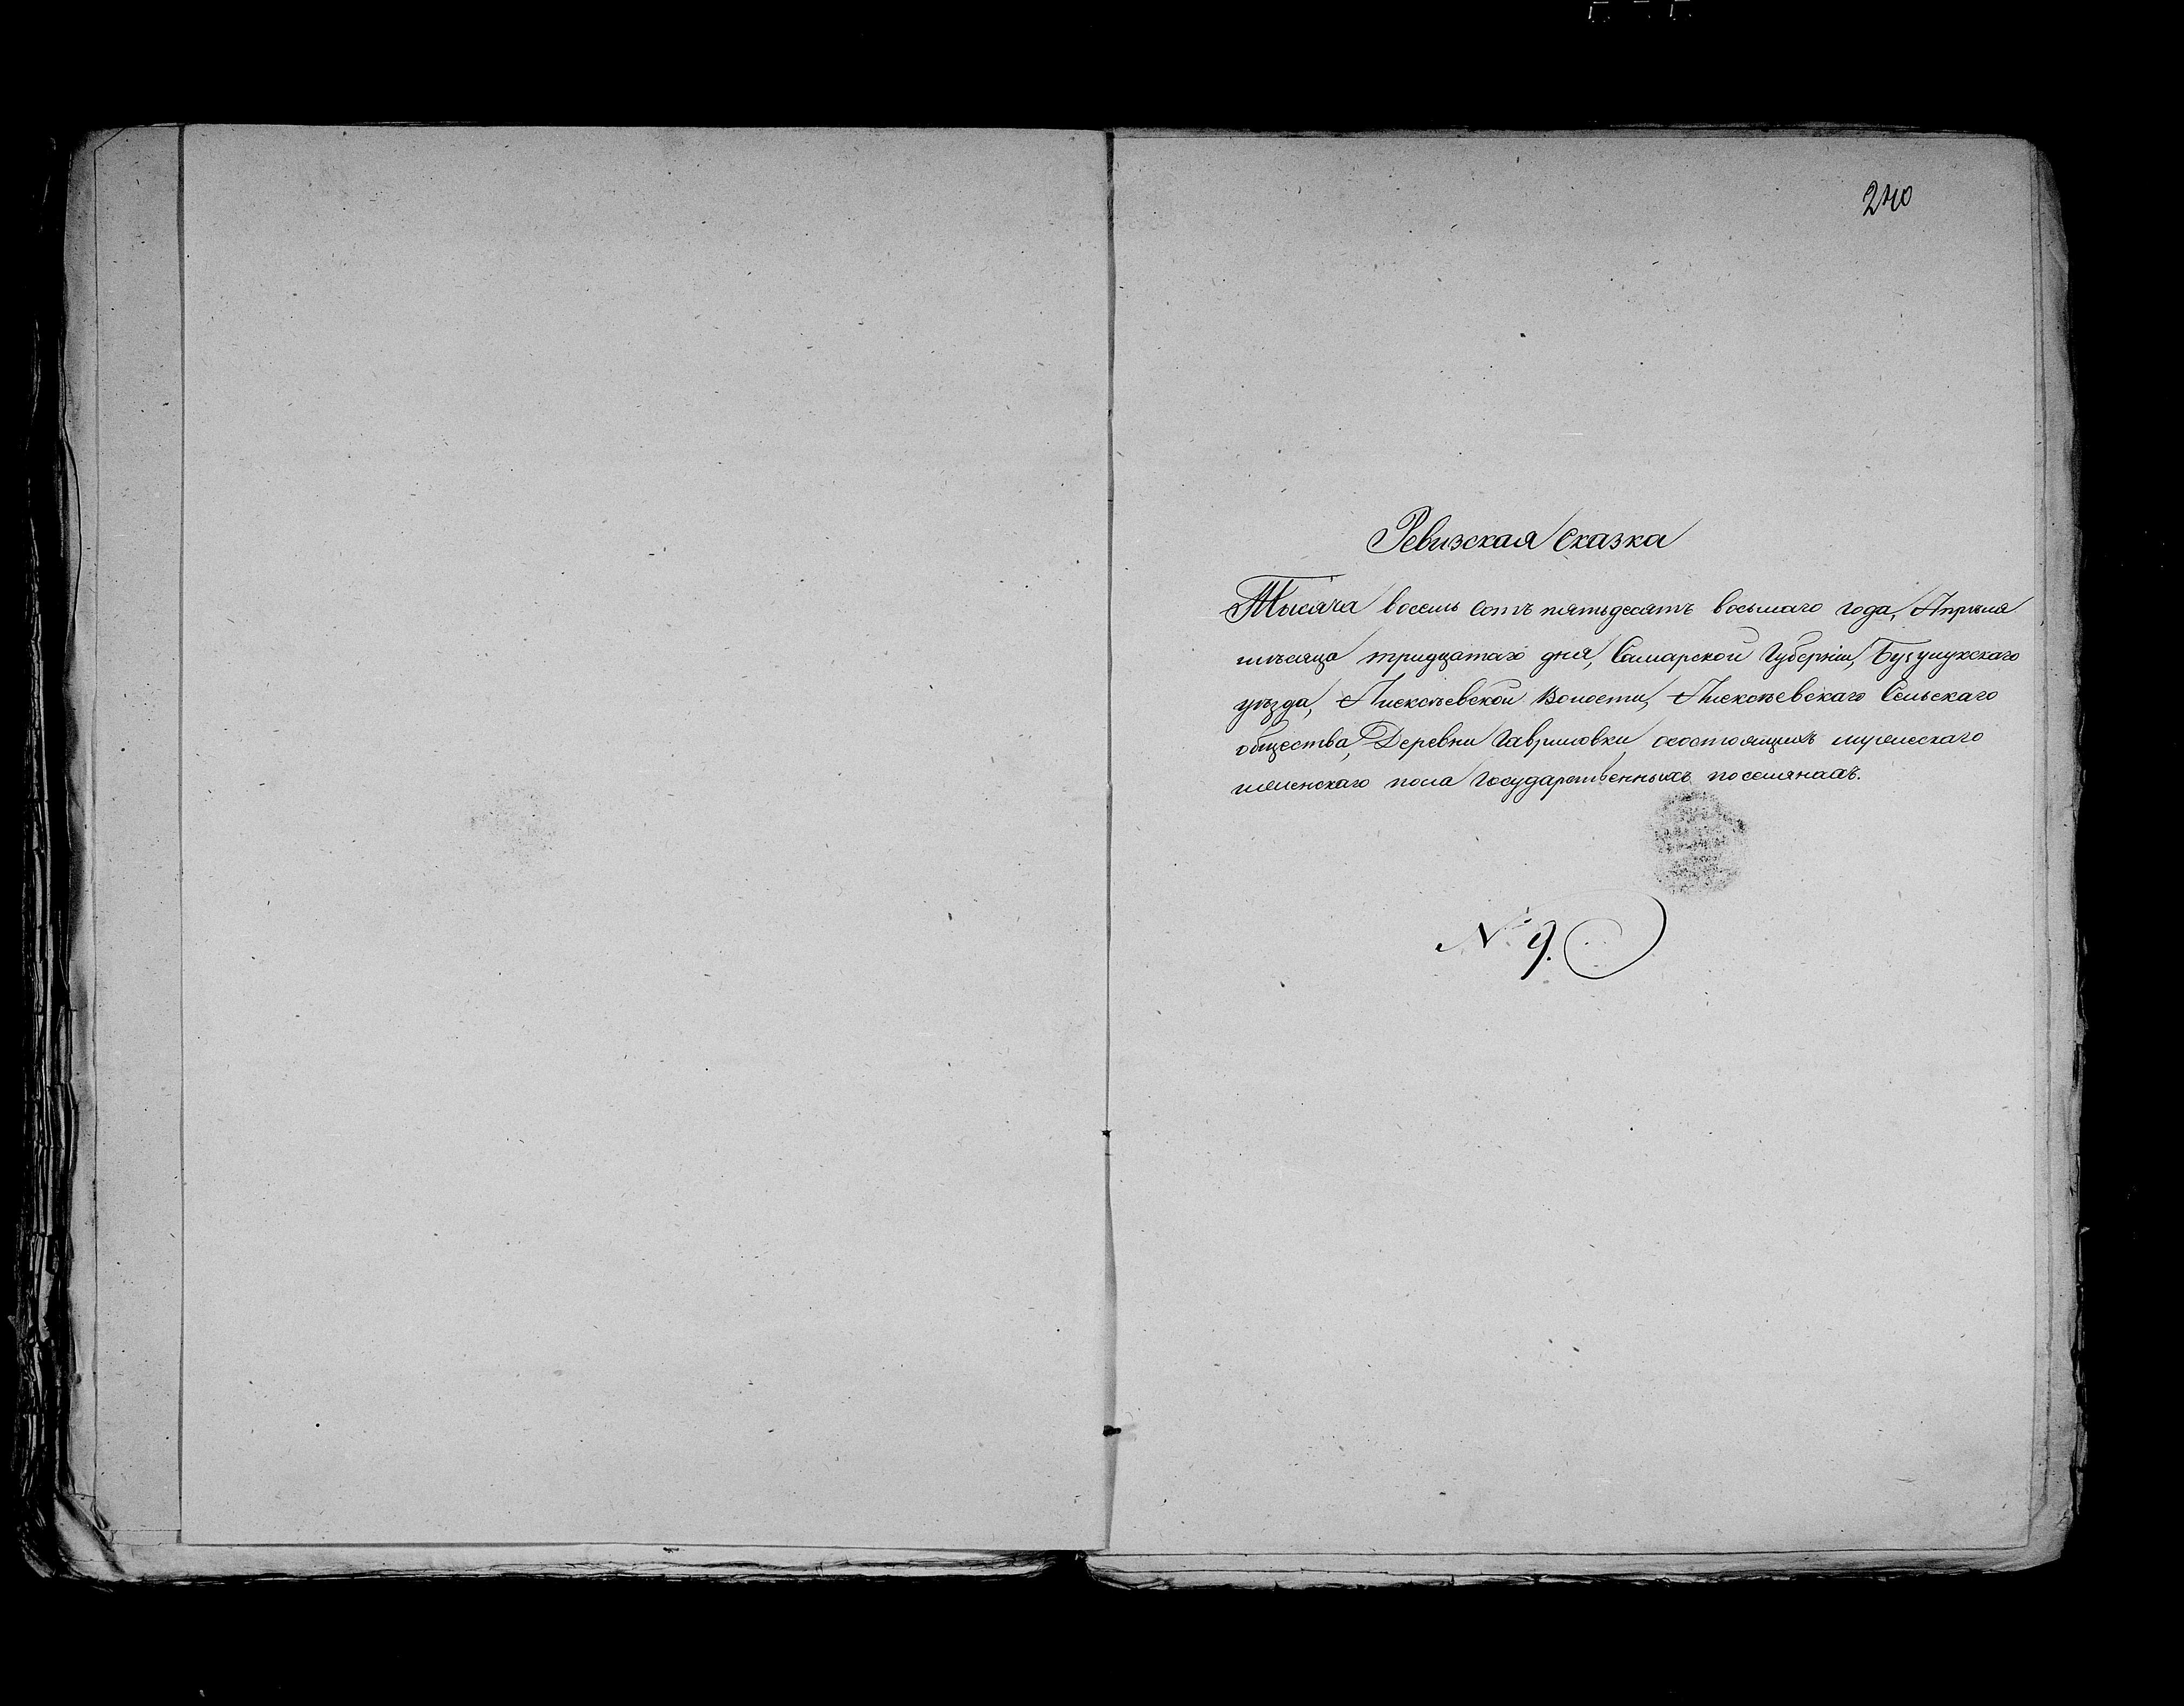 240
Ревизская сказка
Тысяча восемь сотъ пятьдесятъ восьмаго года, Апрѣля
мѣсяца тридцатаго дня, Самарской Губерніи, Бузулукскаго
уѣзда, Волости, Сельскаго
общества, Деревни Гавриловки, состоящихъ мужескаго
женскаго пола Государственныхъ поселянахъ.
№ 9.